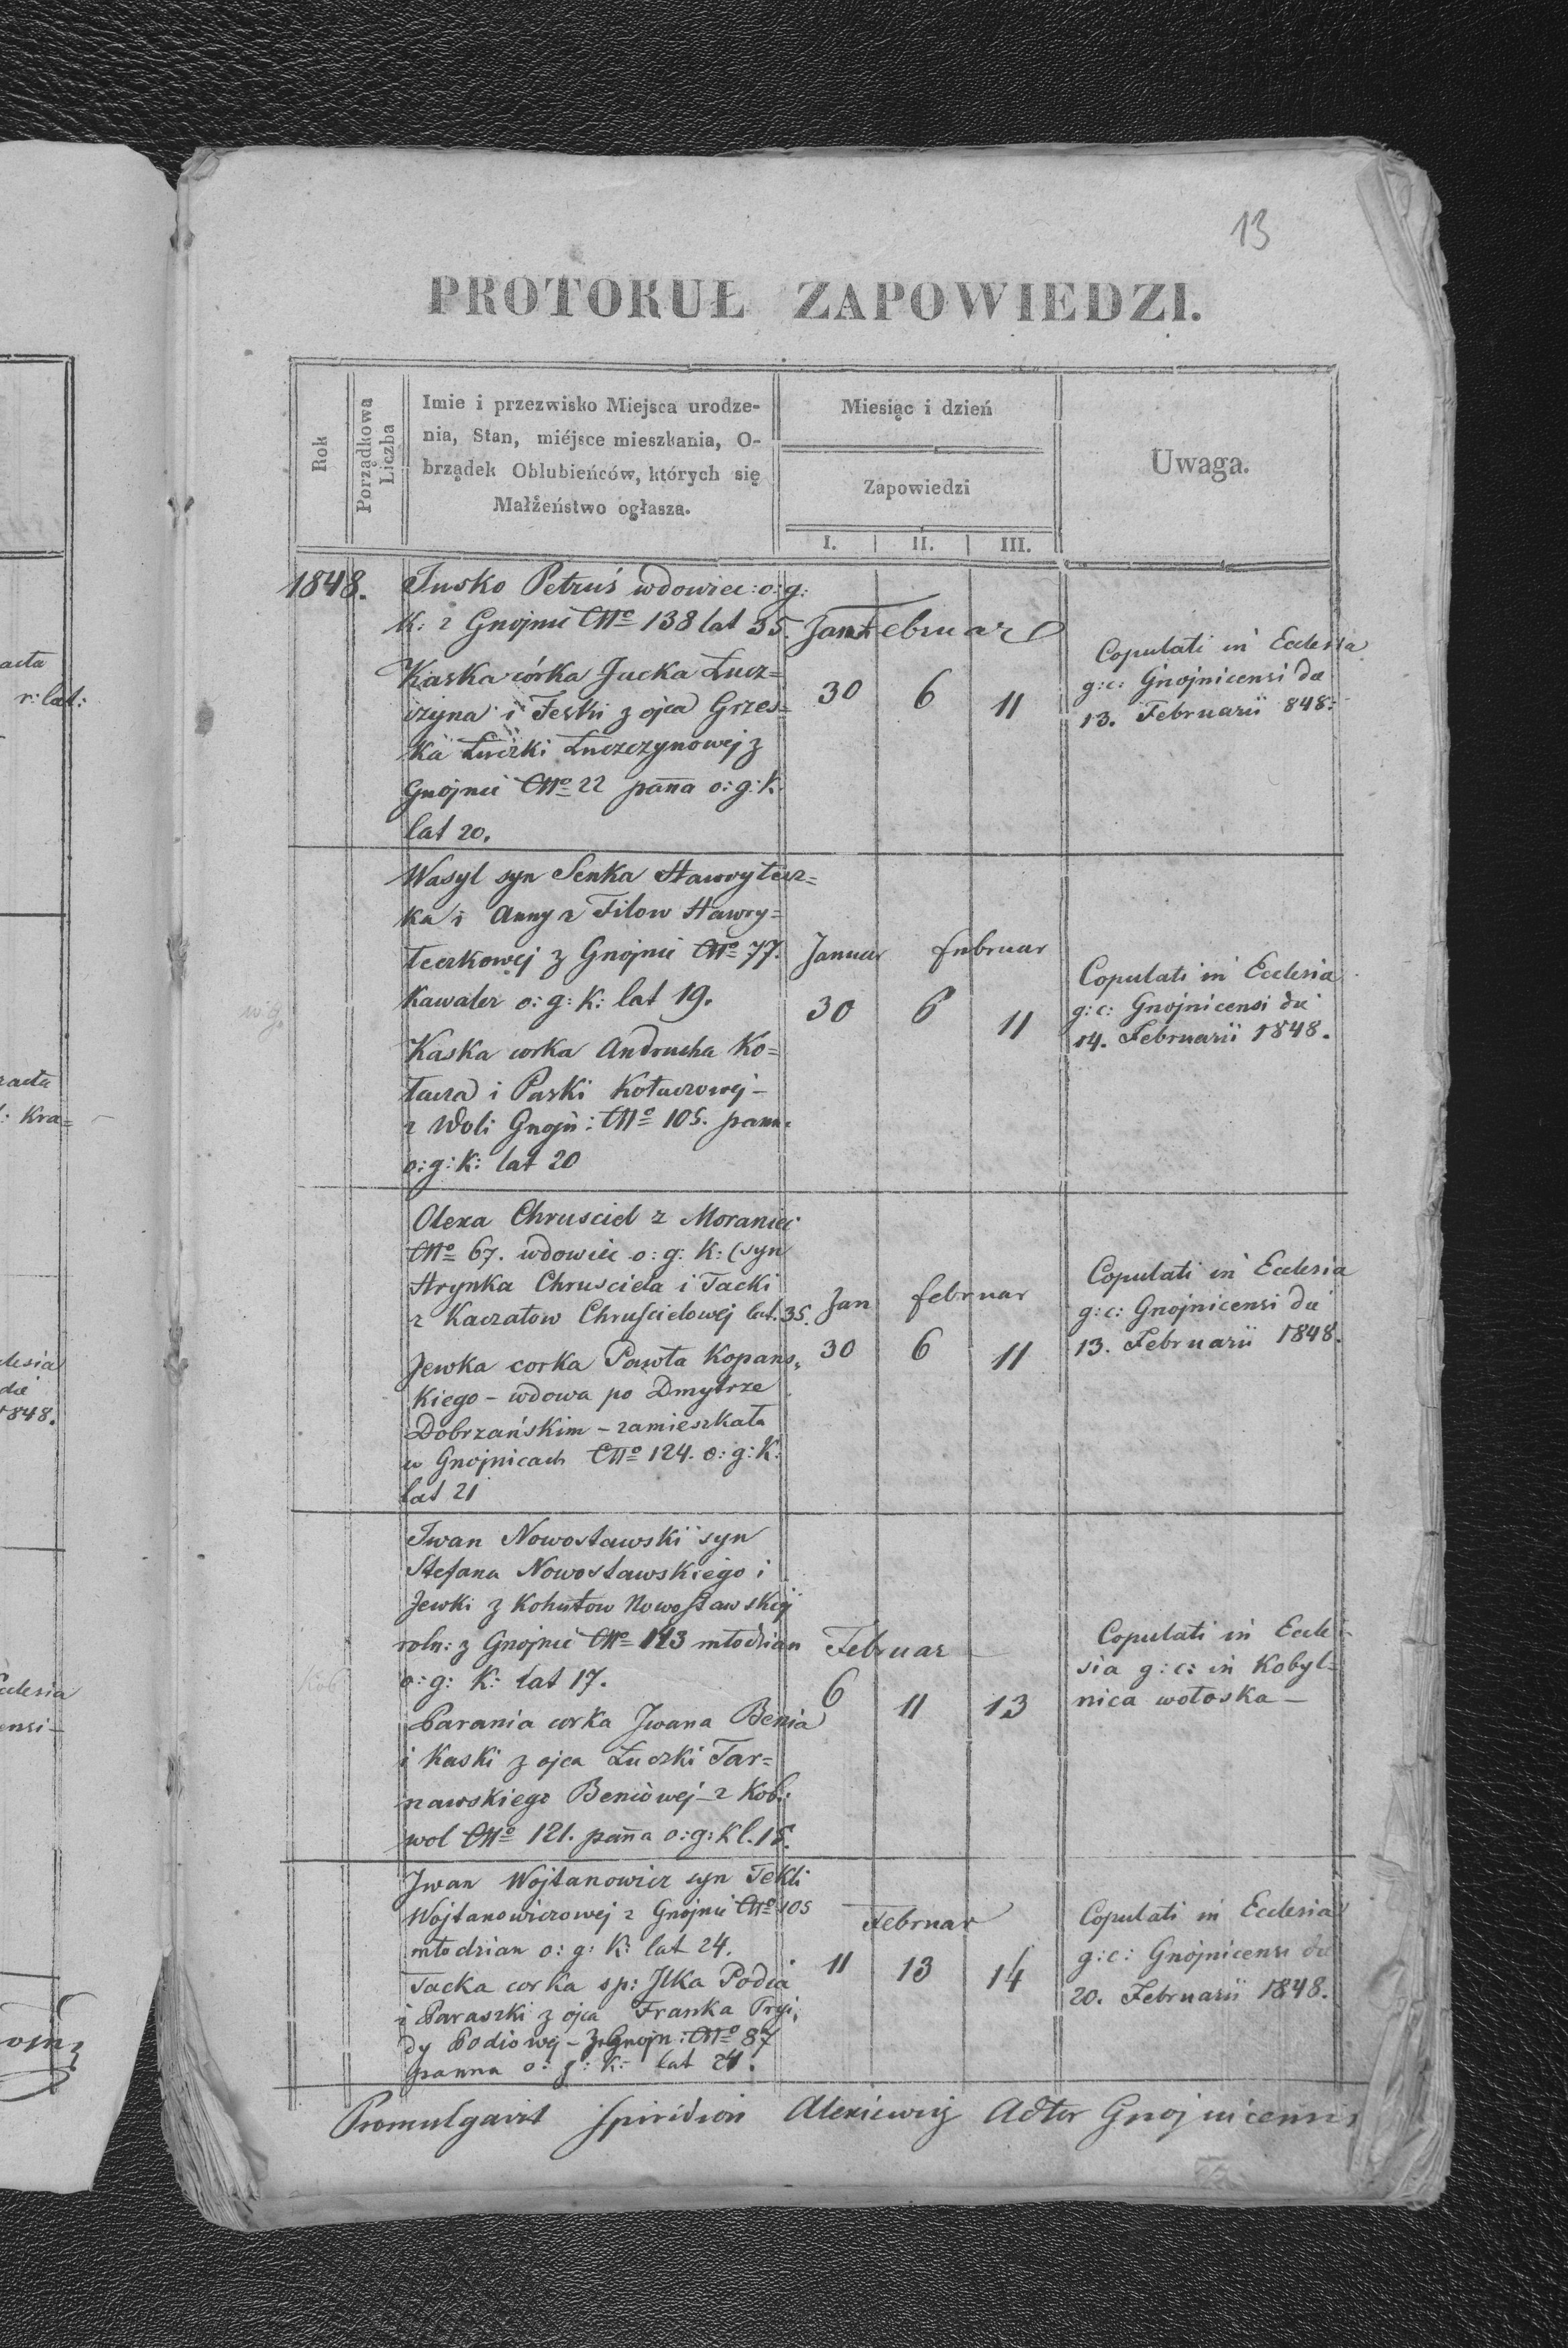 13
PROTOKUŁ ZAPOWIEDZI.
Rok
Porządkowa Liczba
Imie i przezwisko Miejsca urodze-
nia, Stan, miéjsce mieszkania, O-
brządek Oblubieńców, których się
Małżeństwo ogłasza.
Miesiąc i dzień
Zapowiedzi
I. II. III.
Uwaga.
1848.
Petruś wdowiec o: g:
k: z Gnojnic No 138 lat 35.
Kaska córka Jucka Łucz=
czyna i Feski z ojca Grzes=
ka Łuczki Łuczczynowej z
Gnojnic No 22 panna o: g: k:
lat 20.
Jan Februar
30 6 11
Copulati in Ecclesia
g: c: Gnojnicensi die
13. Februarii 848.
Wasyl syn Senka Hawrytecz=
ka i Anny z Filow Hawry=
teczkowej z Gnojnic No 77.
Kawaler o: g: k: lat 19.
Kaska corka Andrucha Ko=
łacza i Paski Kołaczowej -
z Woli Gnojn: No 105. pann.
o: g: k: lat 20
Januar februar
30 6 11
Copulati in Ecclesia
g: c: Gnojnicensi die
14. Februarii 1848.
Olexa Chrusciel z Moraniec
No 67. wdowiec o: g: k: (syn
Hrynka Chrusciela i Tacki
z Kaczałow Chruscielowej lat. 35.
Jewka corka Pawła Kopans=
kiego - wdowa po Dmytrze
Dobrzańskim - zamieszkała
w Gnojnicach No 124. o: g: k:
lat 21
Jan februar
30 6 11
Copulati in Ecclesia
g: c: Gnojnicensi die
13. Februarii 1848.
Iwan Nowosławski syn
Stefana Nowosławskiego i
Jewki z Kohutow Nowosławskiej
roln: z Gnojnic No 143 młodzian
o: g: k: lat 17.
Parania corka Jwana Benia
i Kaski z ojca Łuczki Tar=
nawskiego Beniowej - z Kob:
wol No 121. panna o: g: k l. 18.
Februar
6 11 13
Copulati in Eccle-
sia g: c: in Kobyl=
nica wołoska -
Jwan Wojtanowicz syn Tekli
Wojtanowiczowej z Gnojnic No 105
młodzian o: g: k: lat 24.
Tacka corka sp: Jlka Podia
i Paraszki z ojca Franka Pryi=
dy Podiowej - z Gnojn: No 87
panna o: g: k: lat 24.
Februar
11 13 14
Copulati in Ecclesia
g: c: Gnojnicensi die
20. Februarii 1848.
Promulgavit Spiridion Alexiewicz Adtor Gnojnicensis